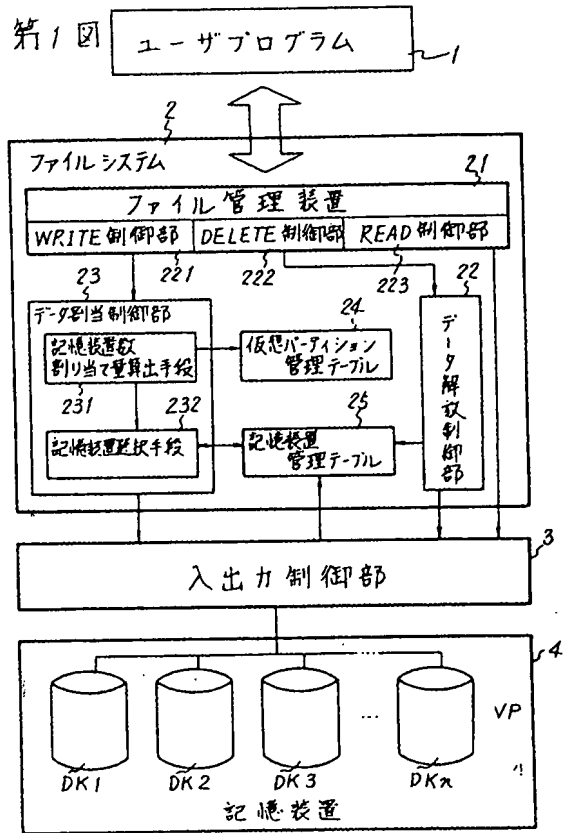 第1図
ユーザプログラム
1
2
ファイルシステム
21
ファイル管理装置
WRITE制御部
DELETE制御部
READ制御部
221
222
223
23
22
データ割当制御部
記憶装置数
割り当て量算出手段
231
24
仮想パーティション
管理テーブル
232
記憶装置選択手段
25
記憶装置
管理テーブル
データ解放制御部
3
入出力制御部
4
DK1
DK2
DK3
…
DKn
VP
記憶装置